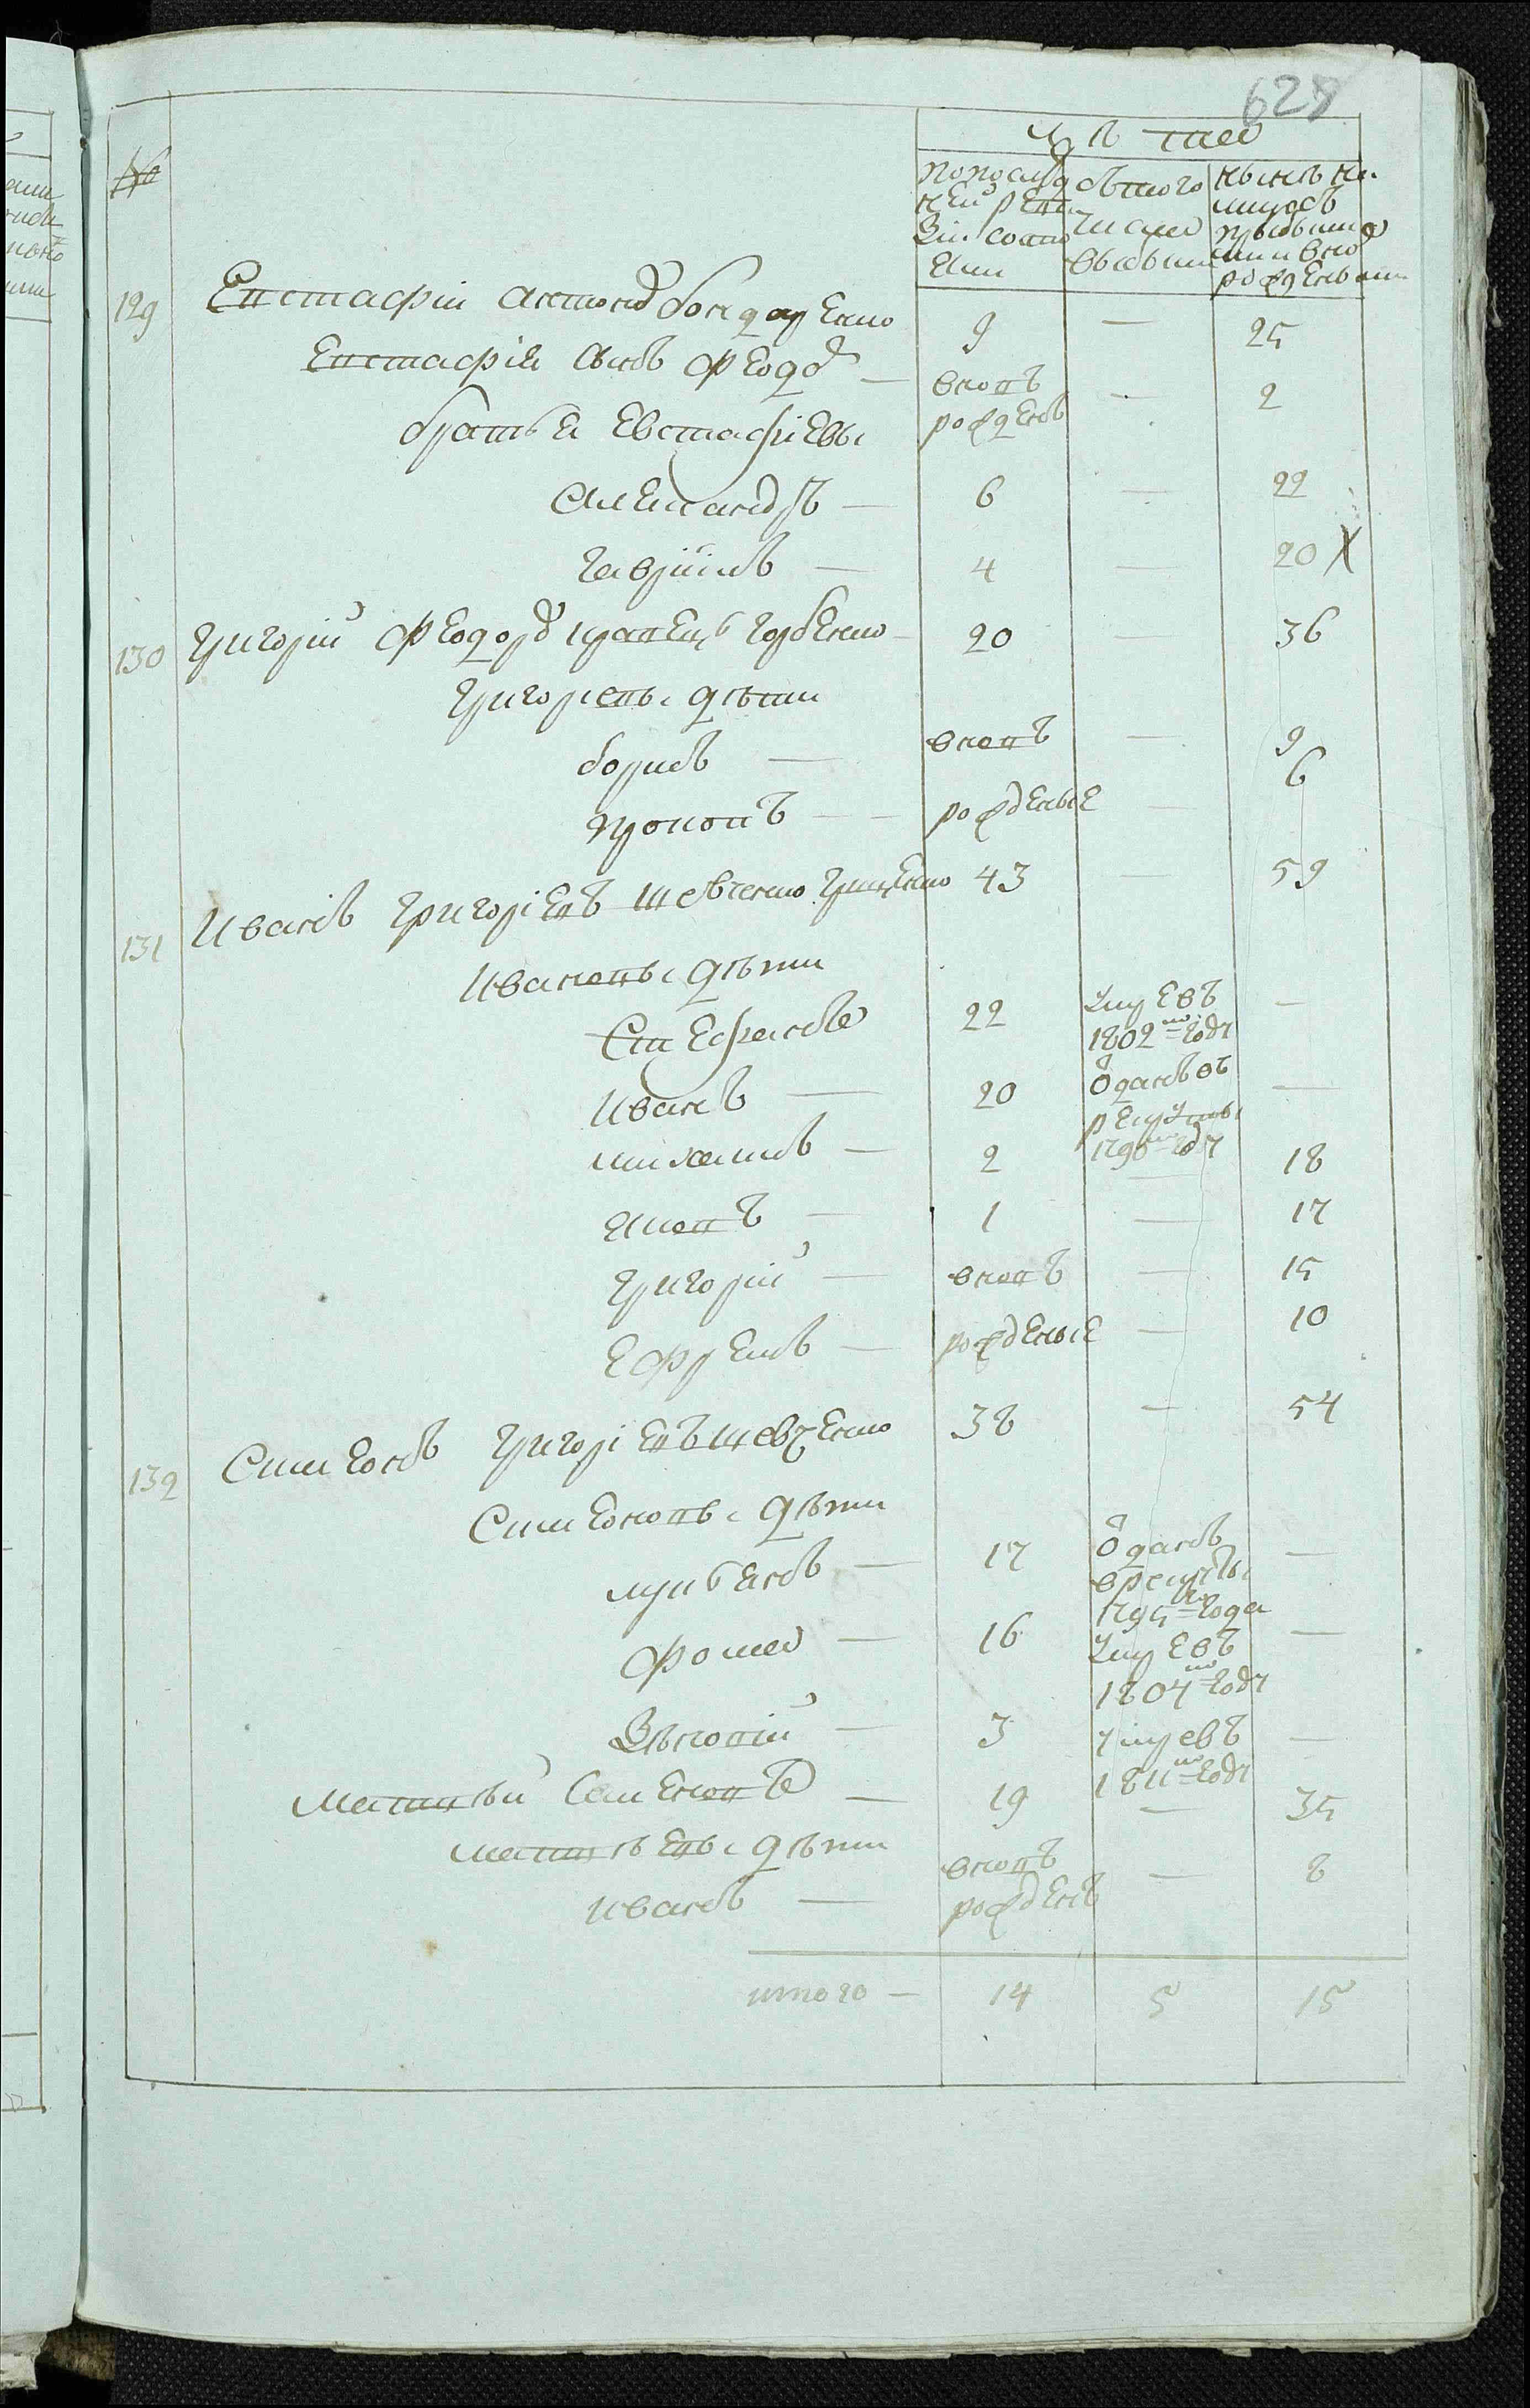 628
№
Лѣта
по послѣд ней ревизіи состо яли
изъ того числа выбыли
нынѣ на лицо съ прибылыми и вновь рожденными
129 Евстафій Антоновъ Бондаренко 9 — 25
Евстафія сынъ Феодоръ — вновь рожденъ — 2
братья Евстафіевы
Александръ — 6 — 22
Гаврiилъ — 4 — 20 X
130 Григорій Феодоровъ Горбенко 20 — 36
Григорьевы дѣти
Борисъ — вновъ — 9
Прокопъ — рожденые — 6
131 Иванъ Григоріевъ Шевченко Гриценко 43 — 59
Ивановы дѣти
Стефанъ 22 умревъ 1802го году —
Иванъ — 20 Отданъ въ рекруты 1796го году —
Михаилъ — 2 — 18
Яковъ — 1 — 17
Григорій — вновъ — 15
Ефремъ — рожденые — 10
132 Симеонъ Григоріевъ Шевченко 38 — 54
Симеоновы дѣти
Лукьянъ — 17 Отданъ в рекруты 1795го года —
Фома — 16 умревъ 1804го году —
Зѣновій — 3 умревъ 1811го году —
Матвѣй Семеновъ — 19 — 35
Матвѣевы дѣти
Иванъ — вновъ рожденъ — 8
итого — 14 5 15